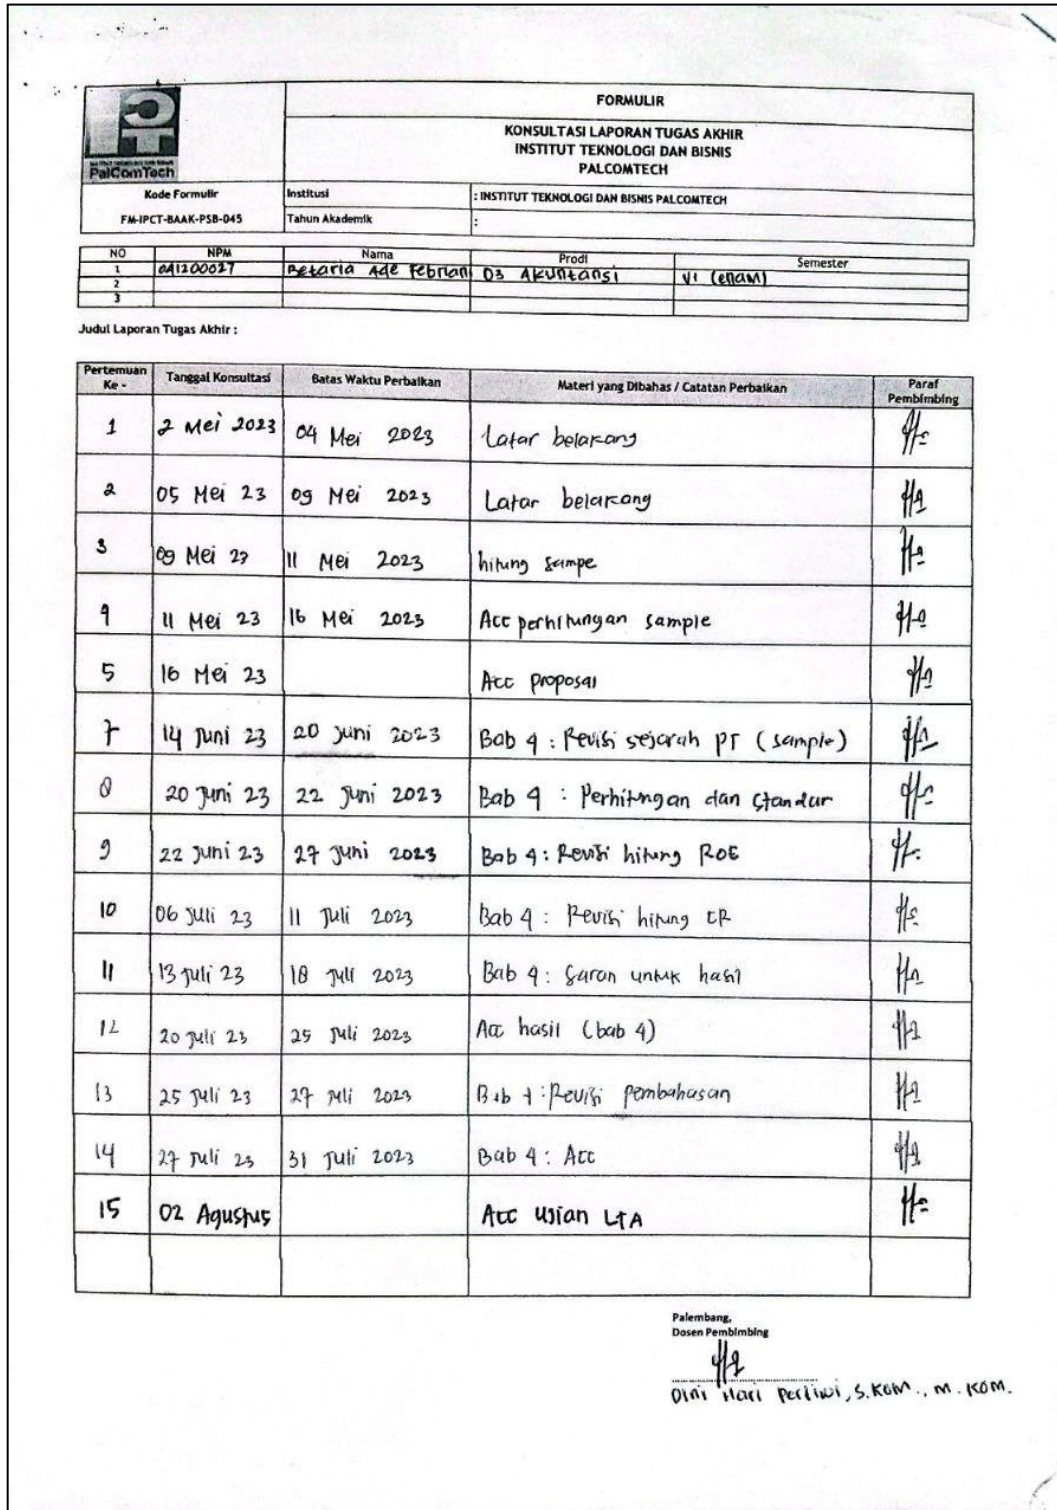 FORMULIR
KONSULTASI LAPORAN TUGAS AKHIR
INSTITUT TEKNOLOGI DAN BISNIS
PALCOMTECH
PalComTech
Kode Formulir Institusi : INSTITUT TEKNOLOGI DAN BISNIS PALCOMTECH
FM-IPCT-BAAK-PSB-045 Tahun Akademik :
NO NPM Nama Prodi Semester
1 041200027 Betaria Ade Febrian D3 Akuntansi VI (enam)
2
3
Judul Laporan Tugas Akhir :
Pertemuan Ke - Tanggal Konsultasi Batas Waktu Perbaikan Materi yang Dibahas / Catatan Perbaikan Paraf Pembimbing
1 2 Mei 2023 04 Mei 2023 Latar belakang
2 05 Mei 23 09 Mei 2023 Latar belakang
3 09 Mei 23 11 Mei 2023 hitung sampe
4 11 Mei 23 16 Mei 2023 Acc perhitungan sample
5 16 Mei 23 Acc proposal
7 14 Juni 23 20 Juni 2023 Bab 4 : Revisi sejarah PT (sample)
8 20 Juni 23 22 Juni 2023 Bab 4 : Perhitungan dan standar
9 22 Juni 23 27 Juni 2023 Bab 4 : Revisi hitung ROE
10 06 Juli 23 11 Juli 2023 Bab 4 : Revisi hitung CR
11 13 Juli 23 18 Juli 2023 Bab 4 : Saran untuk hasil
12 20 Juli 23 25 Juli 2023 Acc hasil (bab 4)
13 25 Juli 23 27 Juli 2023 Bab 4 : Revisi pembahasan
14 27 Juli 23 31 Juli 2023 Bab 4 : Acc
15 02 Agustus Acc Ujian LTA
Palembang,
Dosen Pembimbing
Dini Hari Pertiwi, S.Kom., M.Kom.